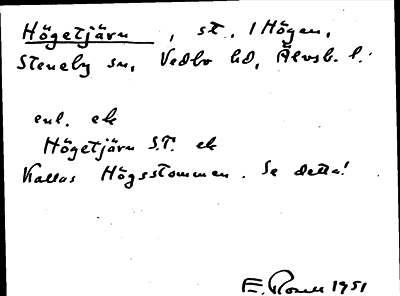 Högetjärn, st. i Högen,
Steneby sn, Vedbo hd, Älvsb. l.
enl. ek
Högetjärn S.T. ek
Kallas Högsstommen. Se detta!
E. Rosell 1951